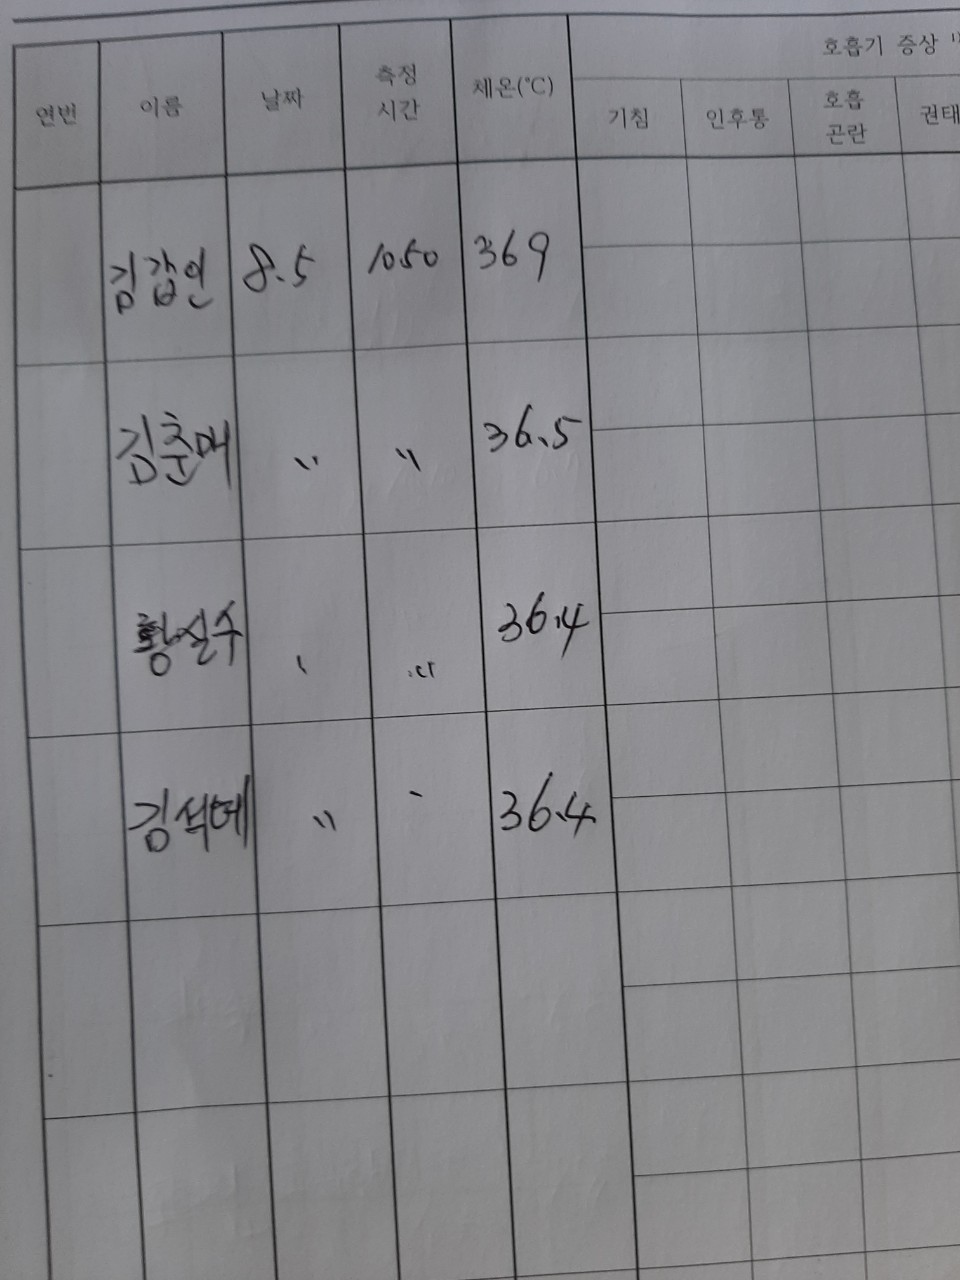 호흡기 증상 1)
연번 이름 날짜 측정 시간 체온(℃) 기침 인후통 호흡 곤란 권태
김갑인 8.5 1050 369
김춘매 〃 〃 36.5
황실수 36.4
김석예 〃 36.4